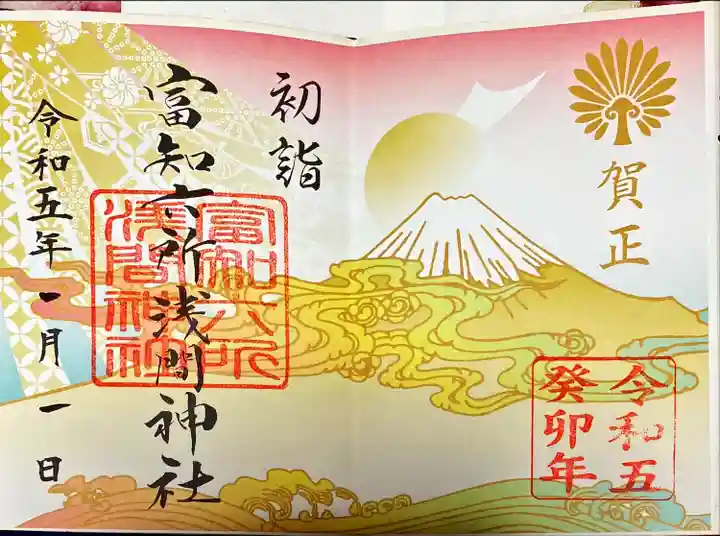 賀正
令和五
癸卯年
初詣
富知六所浅間神社
富知六所
浅間神社
令和五年一月一日